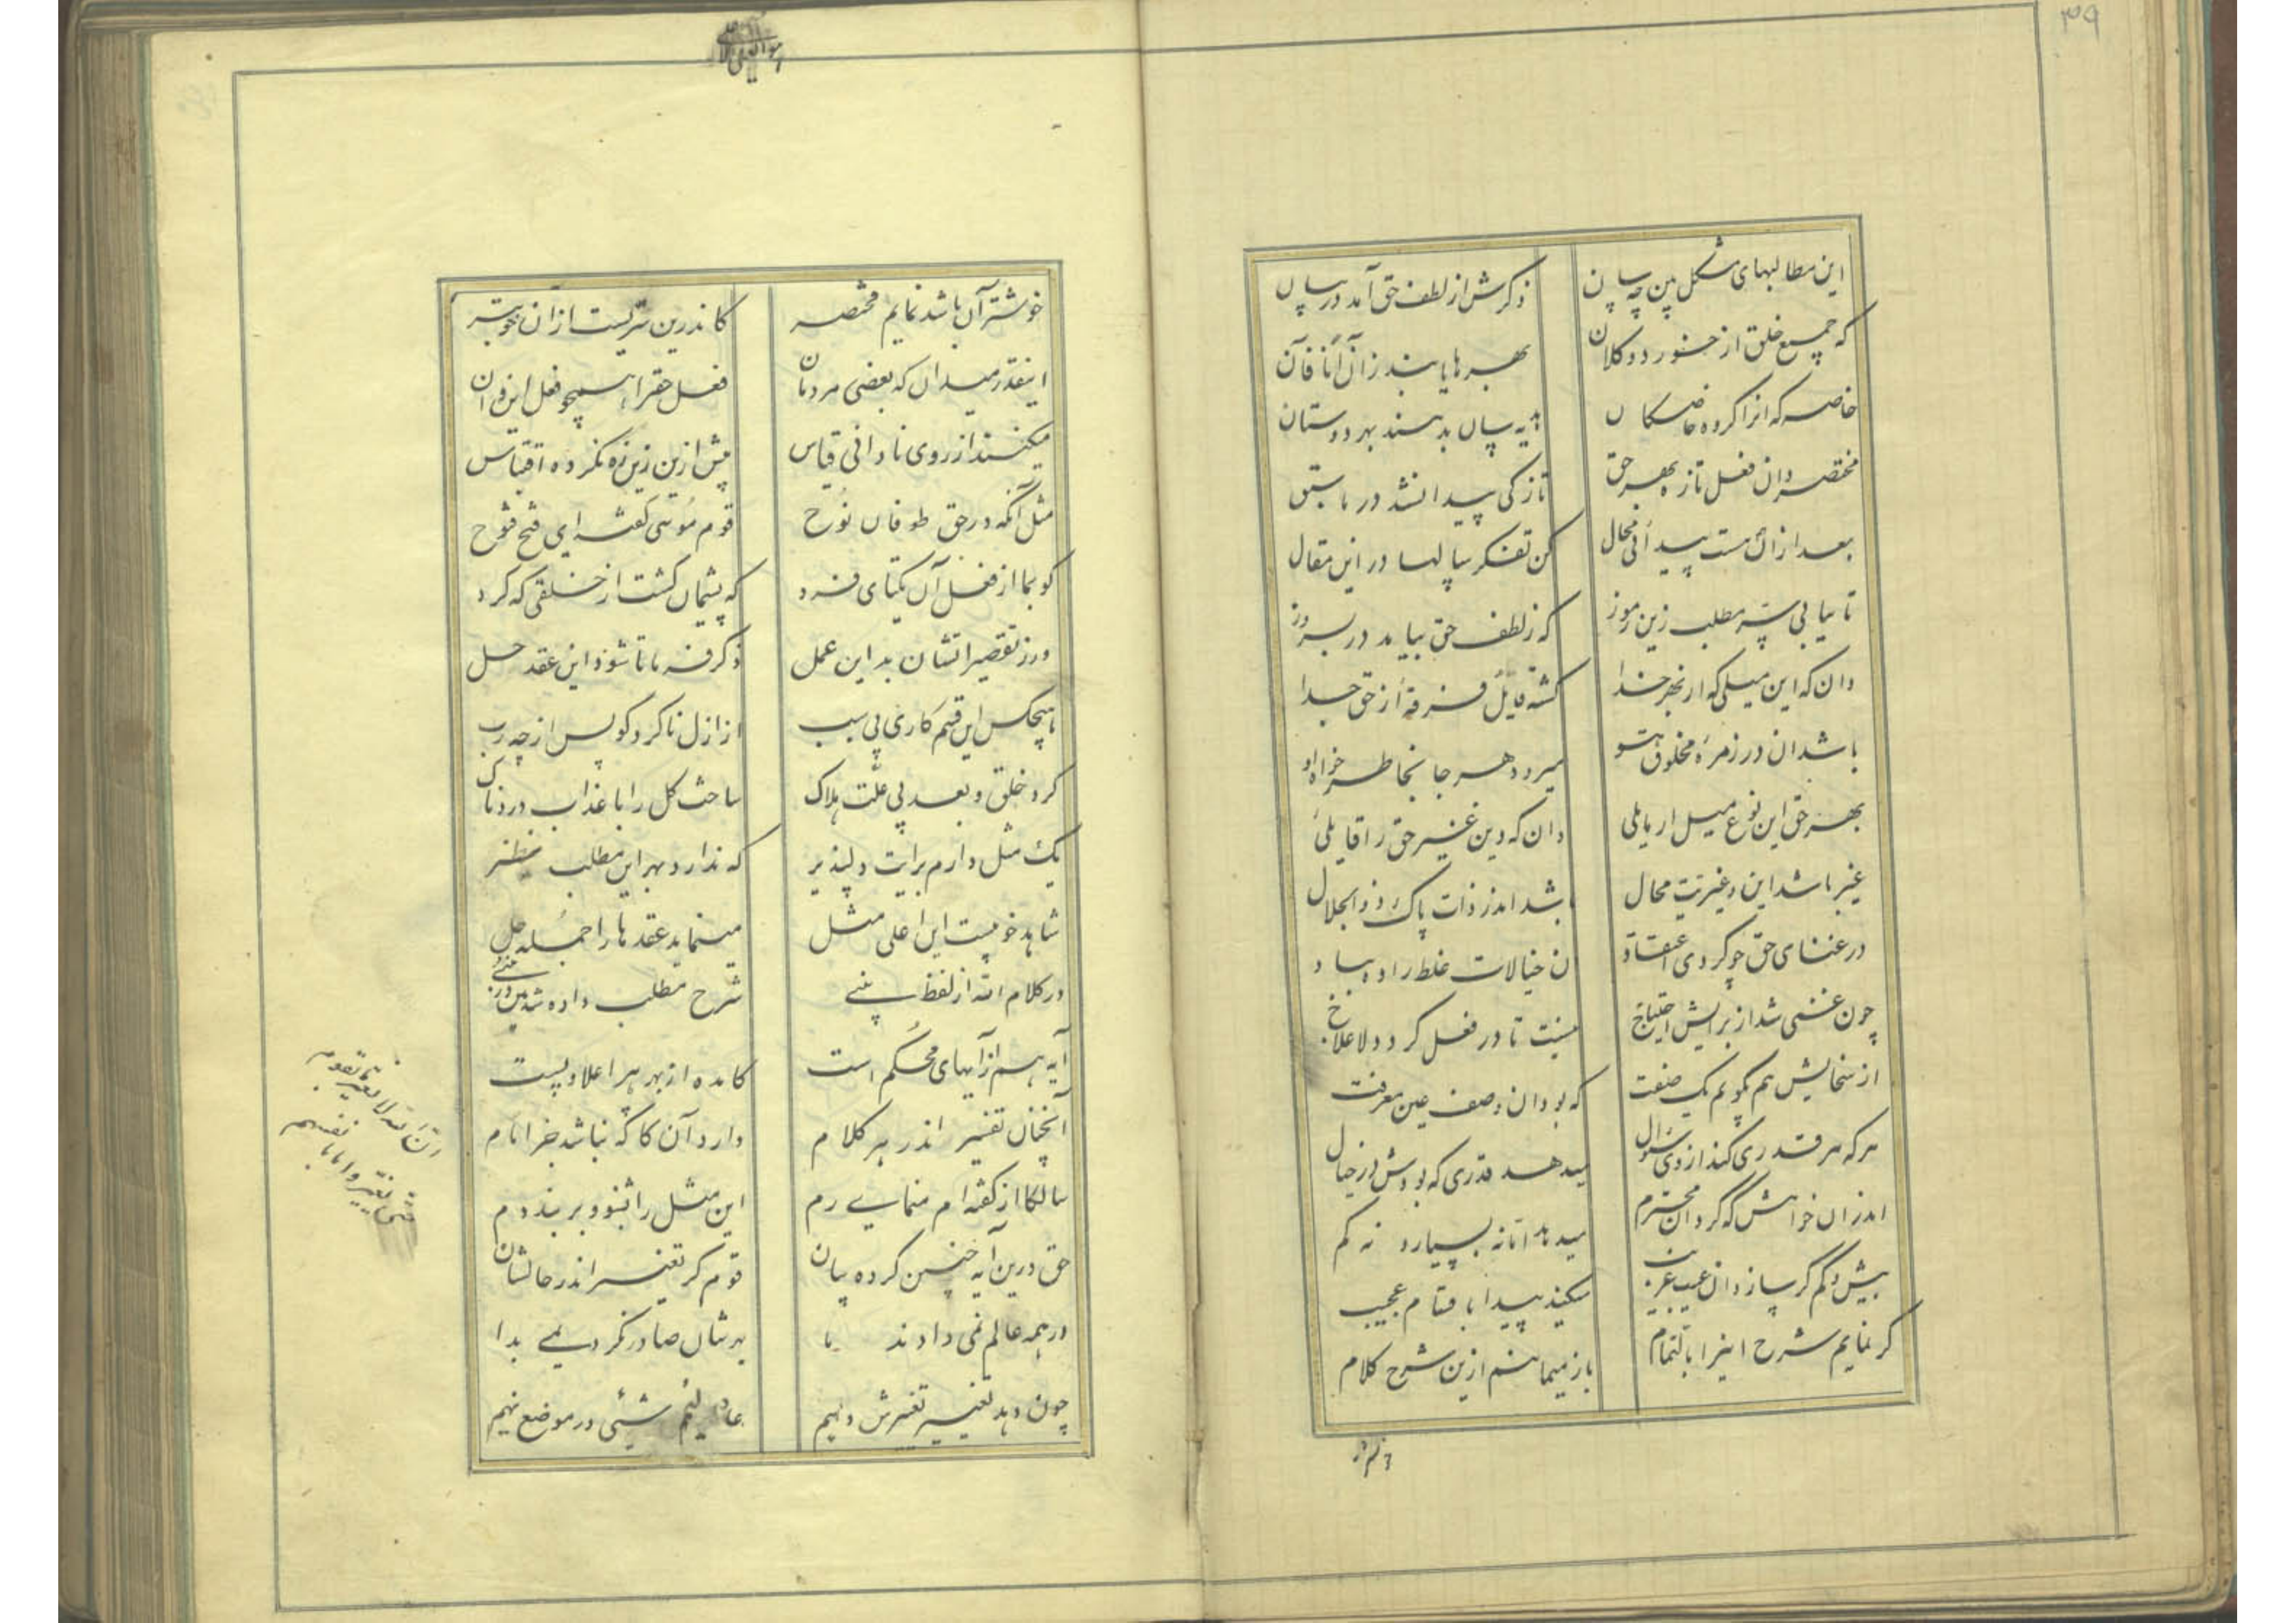 ۳۹
این مطالبهای مشکل بین چه سان
ذکرش از لطف حق آمد در بیان
که جمیع خلق از خورد و کلان
بهرها یابند زان آنا فآن
خاصه که انرا کروه خاصکان
هدیه سان بدهند بهر دوستان
مختصر دان فعل تازه بهر حق
تازکی پیدا نشد در ما سبق
بعد ازان هست پیدائی محال
کن تفکر سالها در این مقال
تا بیابی سر مطلب زین رموز
که ز لطف حق بیاید در بروز
دان که این میلی که از بهر خدا
کشته قایل فرقهٔ از حق جدا
باشد ان در زمرهٔ مخلوق
میرود هر جا بخاطر خواه او
بهر حق این نوع میل ار مایلی
دان که دین غیر حق را قایلی
غیر باشد این و غیریت محال
باشد اندر ذات پاک ذو الجلال
در غنای حق چو کردی اعتقاد
ن خیالات غلط را ده بباد
چون غنی شد از برایش احتیاج
نیست تا در فعل کردد لاعلاج
از سخایش هم بکویم یک صفت
که بود ان وصف عین معرفت
هر که هر قدری کند از وی سوال
میدهد قدری که بودش در خیال
اندران خواهش که کرد ان محترم
میدهد اما نه بسیار و نه کم
بیش و کم کر سازد ان عیب
میکند پیدا بافتام عجیب
کر نمایم شرح اینرا بالتمام
باز میمانم ازین شرح کلام
خوشتر آن باشد نمایم مختصر
کاندرین سریست از آن خوبتر
اینقدر میدان که بعضی مردمان
فعل حقرا همچو فعل این و ان
میکنند از روی نادانی قیاس
پیش ازین زین ره نکرده اقتباس
مثل آنکه در حق طوفان نوح
قوم موسی کفته ای فتح فتوح
کو بما از فعل آن یکتای فرد
که پشیمان کشت از خلقی که کرد
ور ز تقصیراتشان بد این عمل
ذکر فرما تا شود این عقد حل
هیچکس این قسم کاری بی سبب
از ازل نا کرد کو پس از چه رب
کرد خلق و بعد بی علت هلاک
ساخت کل را با عذاب دردناک
یک مثل دارم برایت دلپذیر
که ندارد بهر این مطلب نظیر
شاهد خوبیست این اعلی مثل
مینماید عقدها را جمله حل
در کلام الله از لفظ
شرح مطلب داده شد
آیه هم از آیهای محکم است
کامده از بهر هر اعلا و پست
آنچنان تفسیر اندر هر کلام
دارد آن کاکه نباشد جز انام
سالکا از کفته ام منمای رم
این مثل را بشنو و بربند دم
حق درین آیه چنین کرده بیان
قوم کر تغییر اندر حالشان
در همه عالم نمی دادند ما
بهرشان صادر نکردیمی بدا
چون دهد تغییر تغییرش دهیم
عادلیم شیئی در موضع نهیم
ان الله لا یغیر ما بقوم
حتی یغیروا ما بانفسهم